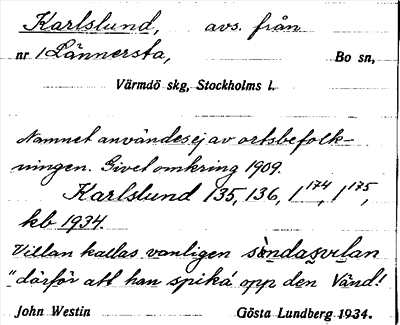 Karlslund, avs. från
nr 1 Lännersta, Bo sn,
Värmdö skg, Stockholms l.
Namnet användes ej av ortsbefolk-
ningen. Givet omkring 1909.
Karlslund 135, 136, 1174, 1175,
kb 1934.
Villan kallas vanligen
"därför att han spika' opp den Vänd!
John Westin Gösta Lundberg 1934.